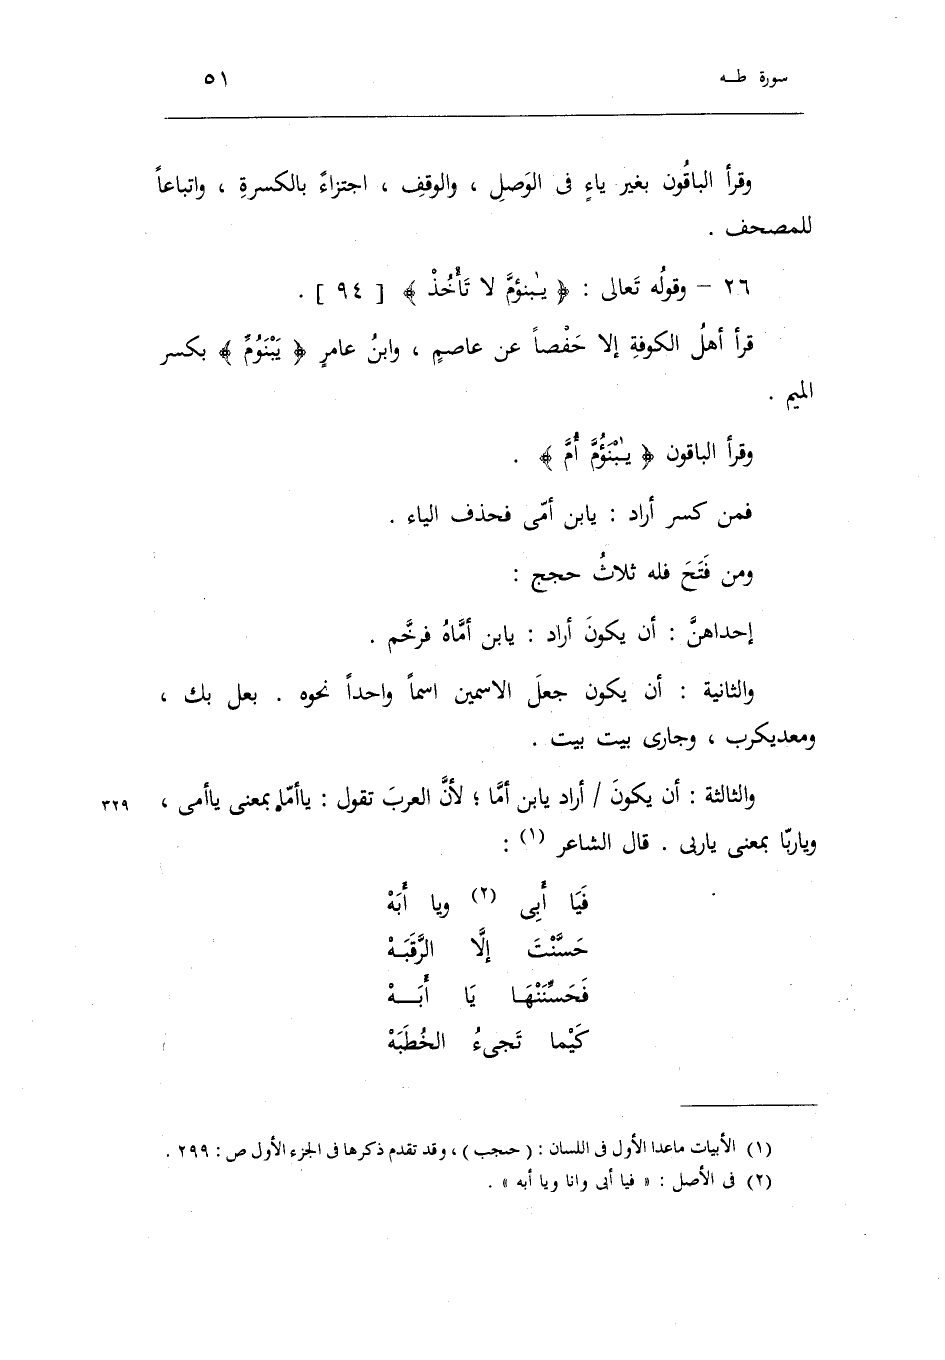 سورة طـه ٥١
وقرأ الباقُون بغير ياءٍ فى الوَصلِ ، والوقفِ ، اجتزاءً بالكسرةِ ، واتباعاً
للمصحف .
٢٦ – وقولُه تَعالى : ﴿ يـٰبنؤمَّ لا تَأْخُذْ ﴾ [ ٩٤ ] .
قرأ أهلُ الكوفةِ إلا حَفْصاً عن عاصمٍ ، وابنُ عامرٍ ﴿ يَبْنَوُمِّ ﴾ بكسر
الميم .
وقرأ الباقون ﴿ يـٰبْنَؤُمَّ أُمَّ ﴾ .
فمن كسر أراد : يابن أمّى فحذف الياء .
ومن فَتَحَ فله ثلاثُ حجج :
إحداهنَّ : أن يكونَ أراد : يابن أمَّاهُ فرخَّم .
والثانية : أن يكون جعلَ الاسمين اسماً واحداً نحوه . بعل بك ،
ومعديكرب ، وجارى بيت بيت .
والثالثة : أن يكونَ / أراد يابن أمَّا ؛ لأنَّ العربَ تقول : ياأمّا بمعنى ياأمى ، ٣٢٩
وياربّا بمعنى ياربى . قال الشاعر (١) :
فَيَا أَبِى (٢) ويا أَبَهْ
حَسَّنْتَ إلَّا الرَّقَبَهْ
فَحَسِّنَنْهَـا يَا أَبَـــهْ
كَيْما تَجىءُ الخُطَبَهْ
(١) الأبيات ماعدا الأول فى اللسان : ( حجب ) ، وقد تقدم ذكرها فى الجزء الأول ص : ٢٩٩ .
(٢) فى الأصل : « فيا أبى وانا ويا أبه » .